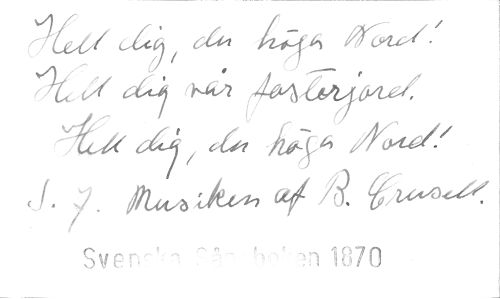 Hell dig, du höga Nord!
Hell dig vår fosterjord.
Hell dig, du höga Nord!
S. 7. Musiken af B. Crusell.
Svenska Sån boken 1870